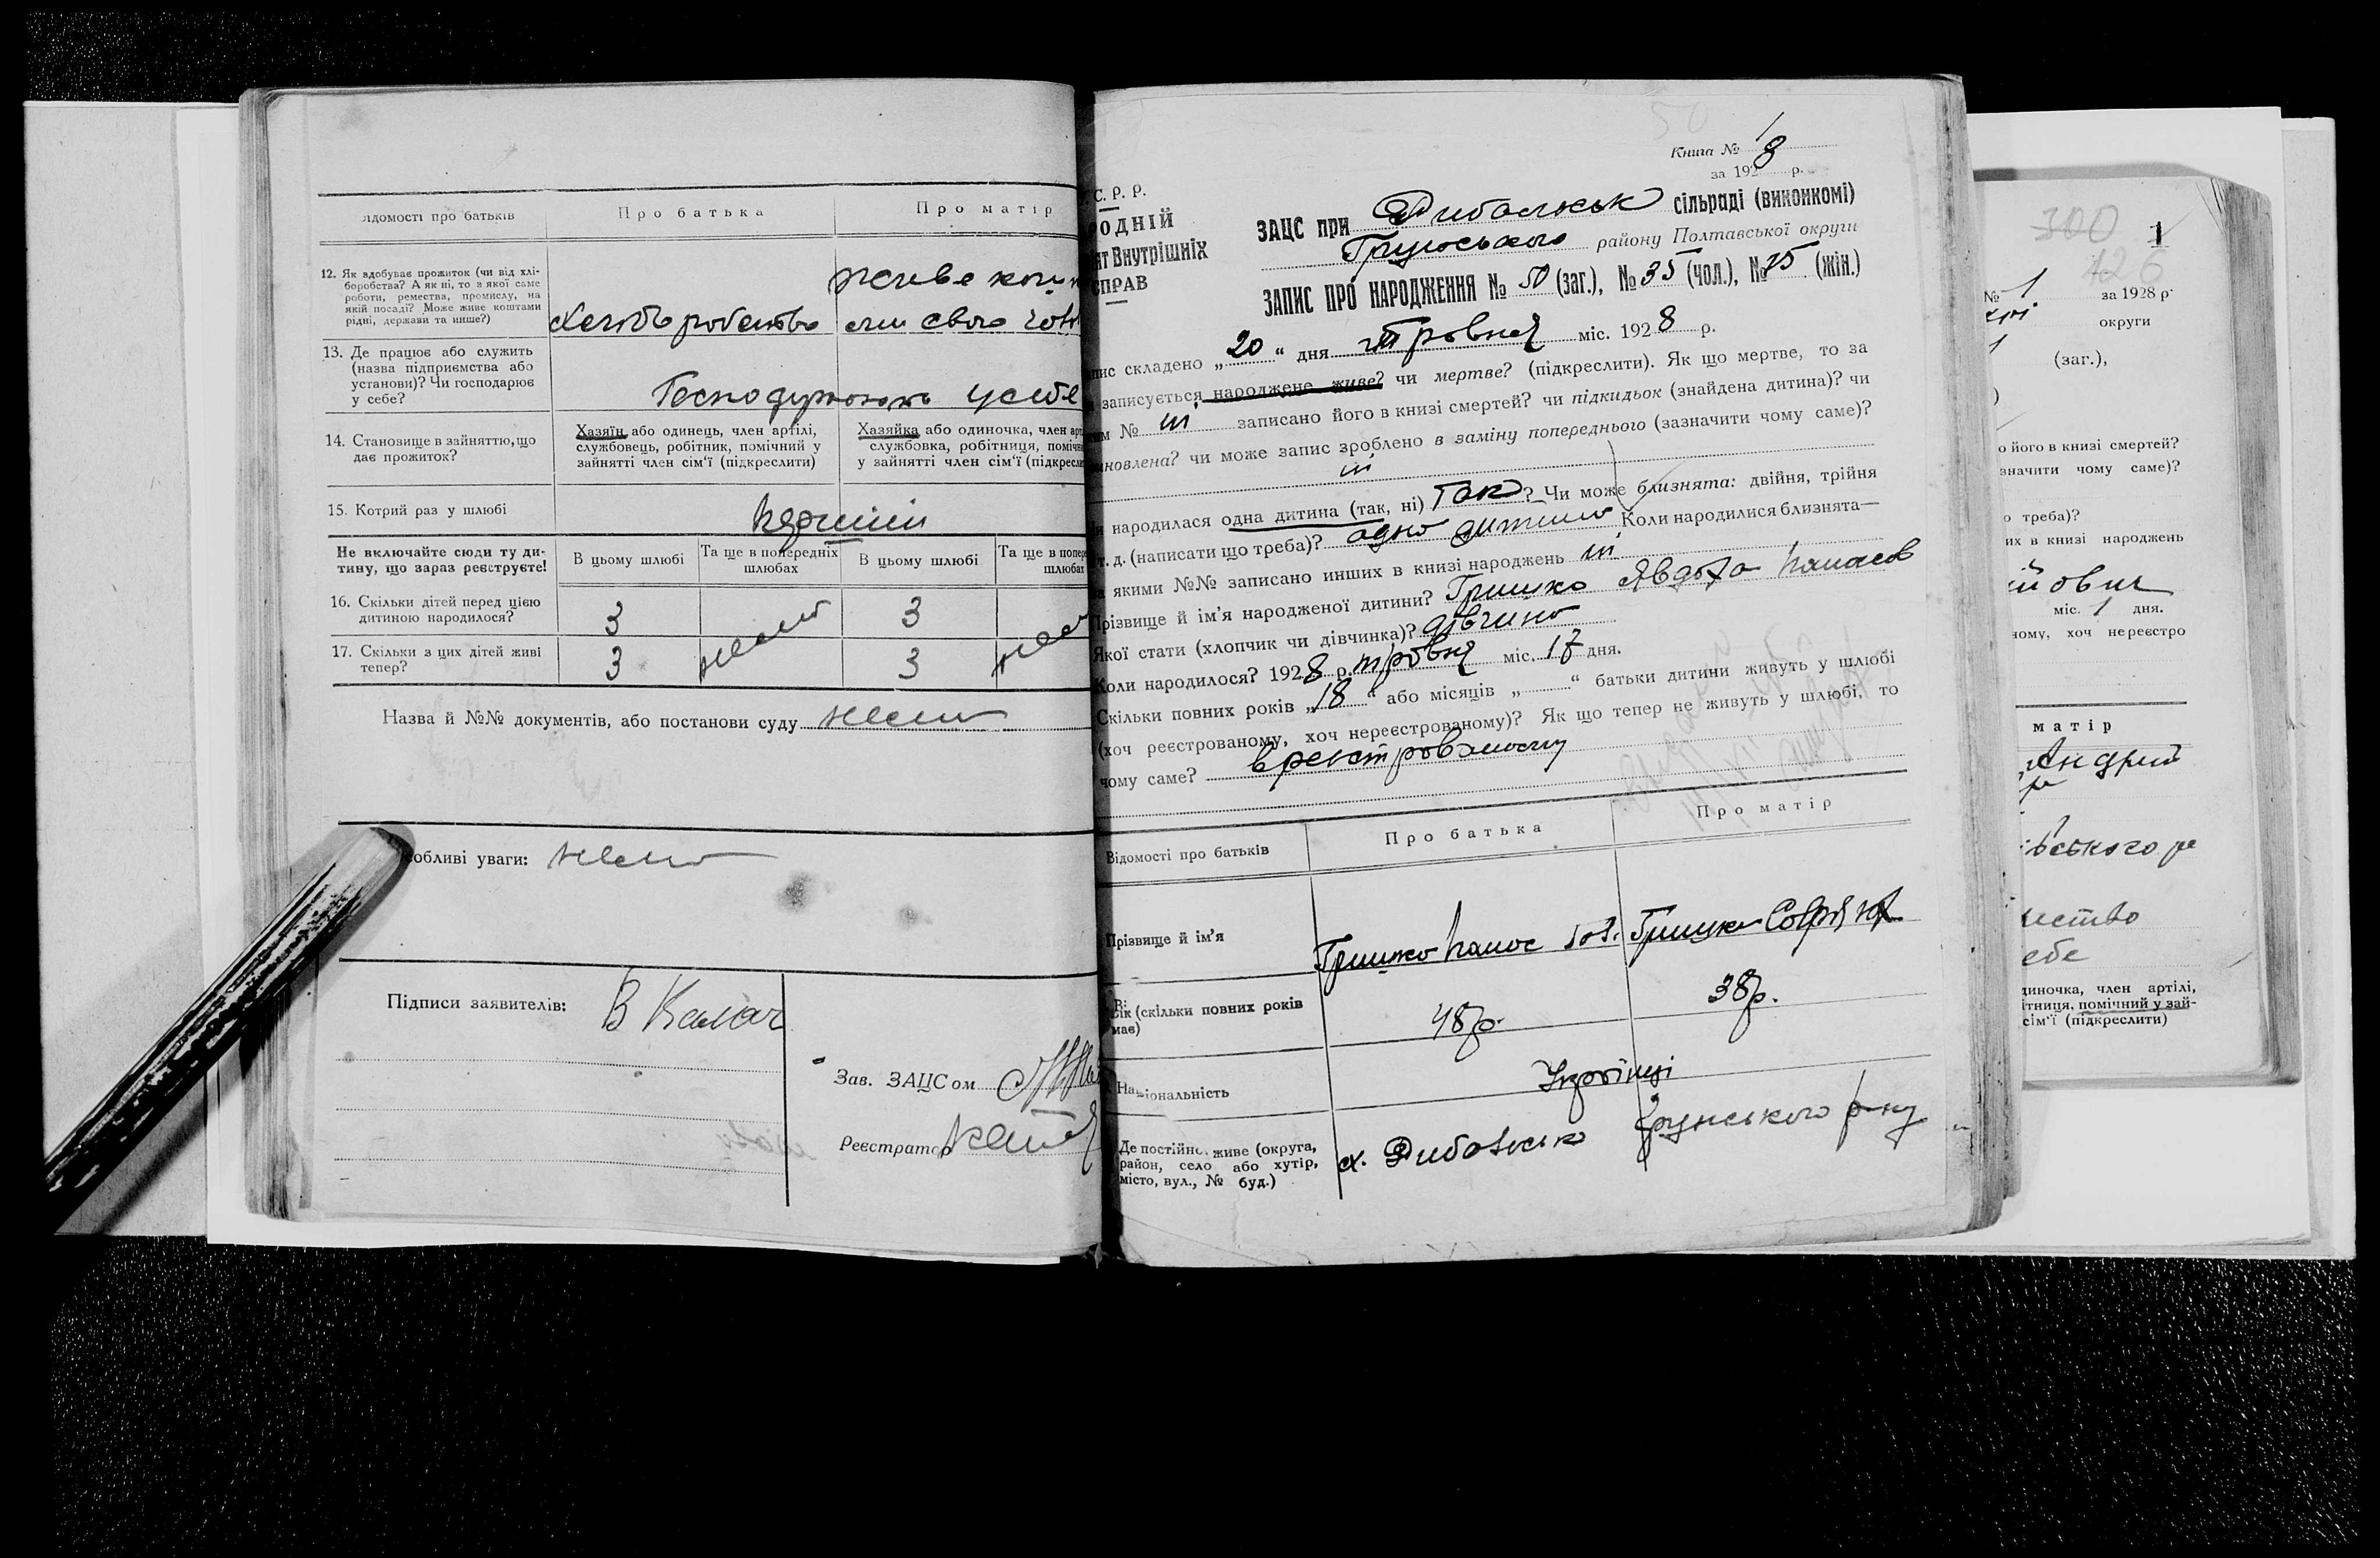 Відомості про батьків
Про батька
Про матір
12. Як здобуває прожиток (чи від хлі-
боробства? А як ні, то з якої саме
роботи, ремества, промислу, на
якій посаді? Може живе коштами
рідні, держави та инше?)
Хліборобство
живе кошт
ами свого чол
13. Де працює або служить
(назва підприємства або
установи)? Чи господарює
у себе?
Господарюють у себе
14. Становище в зайняттю, що
дає прожиток?
Хазяїн або одинець, член артілі,
службовець, робітник, помічний у
зайнятті член сім'ї (підкреслити)
Хазяйка або одиночка, член арт
службовка, робітниця, поміч
у зайнятті член сім'ї (підкресли
15. Котрий раз у шлюбі
Не включайте сюди ту ди-
тину, що зараз реєструєте!
В цьому шлюбі
Та ще в попередніх
шлюбах
В цьому шлюбі
Та ще в попере
шлюбах
16. Скільки дітей перед цією
дитиною народилося?
3
3
17. Скільки з цих дітей живі
тепер?
3
нема
3
Назва й №№ документів, або постанови суду нема
собливі уваги: нема
Підписи заявителів:
Зав. ЗАЦСом
Реєстратор
Книга № 1
за 1928 р.
С. Р. Р.
РОДНІЙ
ЯТ Внутрішніх
СПРАВ
ЗАЦС при Рибальськ сільраді (виконкомі)
Грунського району Полтавської округи
ЗАПИС ПРО НАРОДЖЕННЯ № 50 (заг.), № 35 (чол.), № 15 (жін.)
пис складено „20“ дня травня міс. 1928 р.
записується народжене живе? чи мертве? (підкреслити). Як що мертве, то за
им № записано його в книзі смертей? чи підкидьок (знайдена дитина)? чи
ановлена? чи може запис зроблено в заміну попереднього (зазначити чому саме)?
и народилася одна дитина (так, ні) Так? Чи може близнята: двійня, трійня
т. д. (написати що треба)? одна дитина Коли народилися близнята—
якими №№ записано инших в книзі народжень
Прізвище й ім'я народженої дитини? Гришко Явдоха Панасов
Якої стати (хлопчик чи дівчинка)? дівчина
Коли народилося? 1928 р. травня міс. 17 дня.
Скільки повних років „18“ або місяців „ “ батьки дитини живуть у шлюбі
(хоч реєстрованому, хоч нереєстрованому)? Як що тепер не живуть у шлюбі, то
чому саме? в реєстрованому
Відомості про батьків
Про батька
Про матір
Прізвище й ім'я
Гришко Панас
Гришко Софія
Вік (скільки повних років
має)
48 р.
38 р.
Національність
Українці
Де постійно живе (округа,
район, село або хутір,
місто, вул., № буд.)
Грунського р-ну
300
126
1
№ 1 за 1928 р.
округи
(заг.),
о його в книзі смертей?
значити чому саме)?
о треба)?
их в книзі народжень
міс. 1 дня.
ному, хоч нереєстро
матір
Андрій
вського
ебе
диночка, член артілі,
ітниця, помічний у зай-
сім'ї (підкреслити)